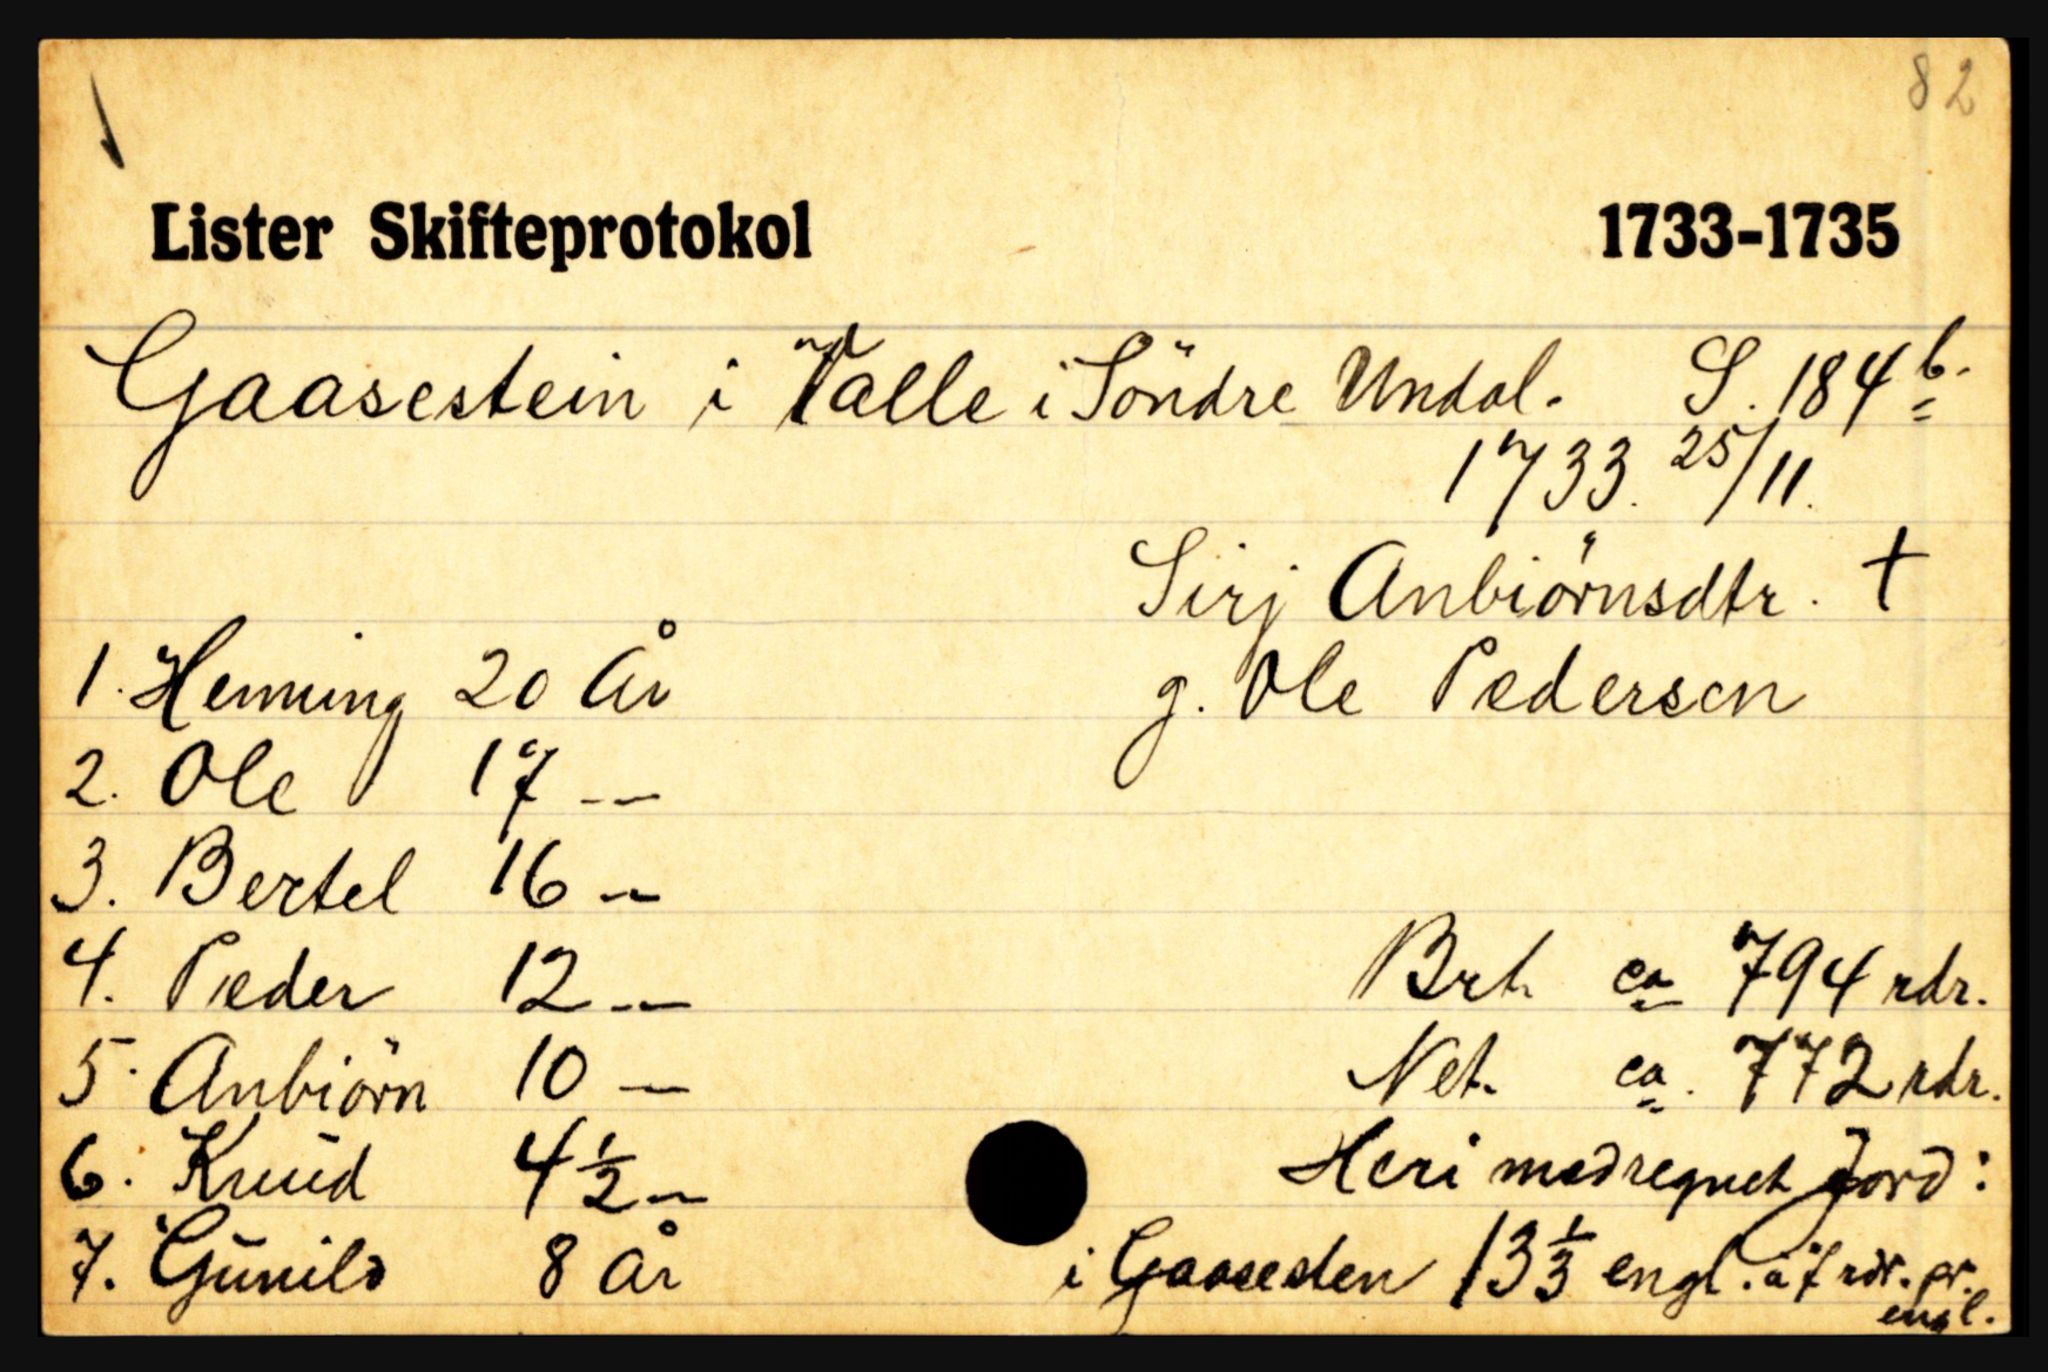 82
Lister Skifteprotokol 1733-1735
Gaasestein i Valle i Söndre Undal. S. 184 b.
1733. 25/11.
Sirj Anbiörnsdtr. †
1. Henning 20 År g. Ole Pedersen
2. Ole 17 —
3. Bertel 16 —
4. Peder 12 — Brt. ca 794 rdr.
5. Anbiörn 10 — Net. ca. 772 rdr.
6. Knud 4 1/2 — Heri medregnet Jord:
7. Gunild 8 år i Gaasesten 13 1/3 engl. a 7 rdr. pr.
engl.